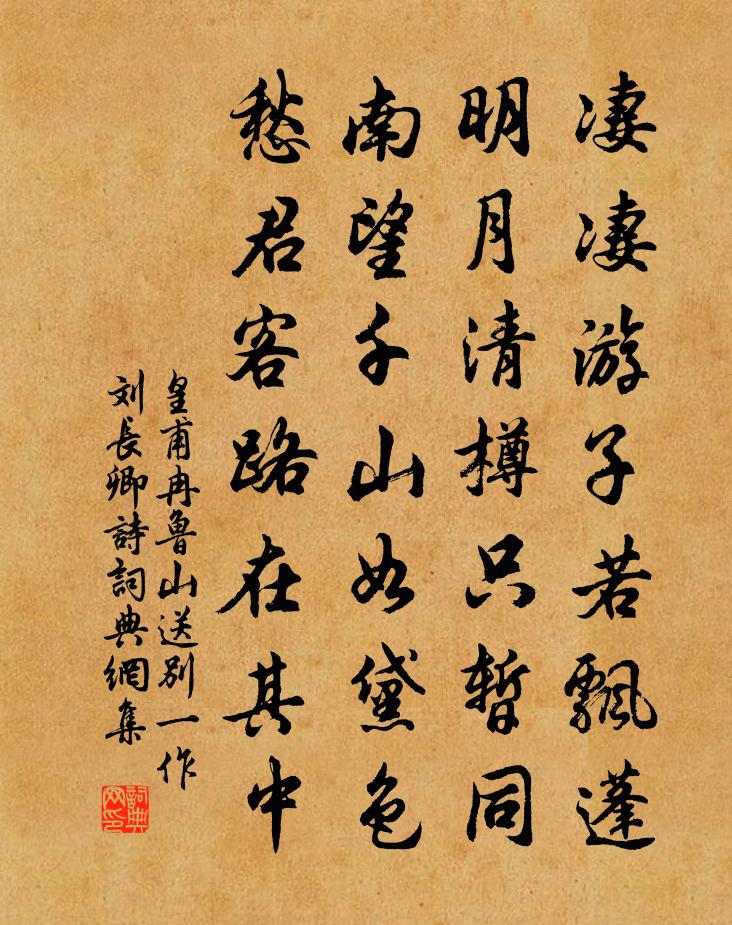 凄凄游子若飄蓬
明月清樽只暫同
南望千山如黛色
愁君客路在其中
皇甫冉魯山送別一作
刘長卿詩詞典網集
詞典网印